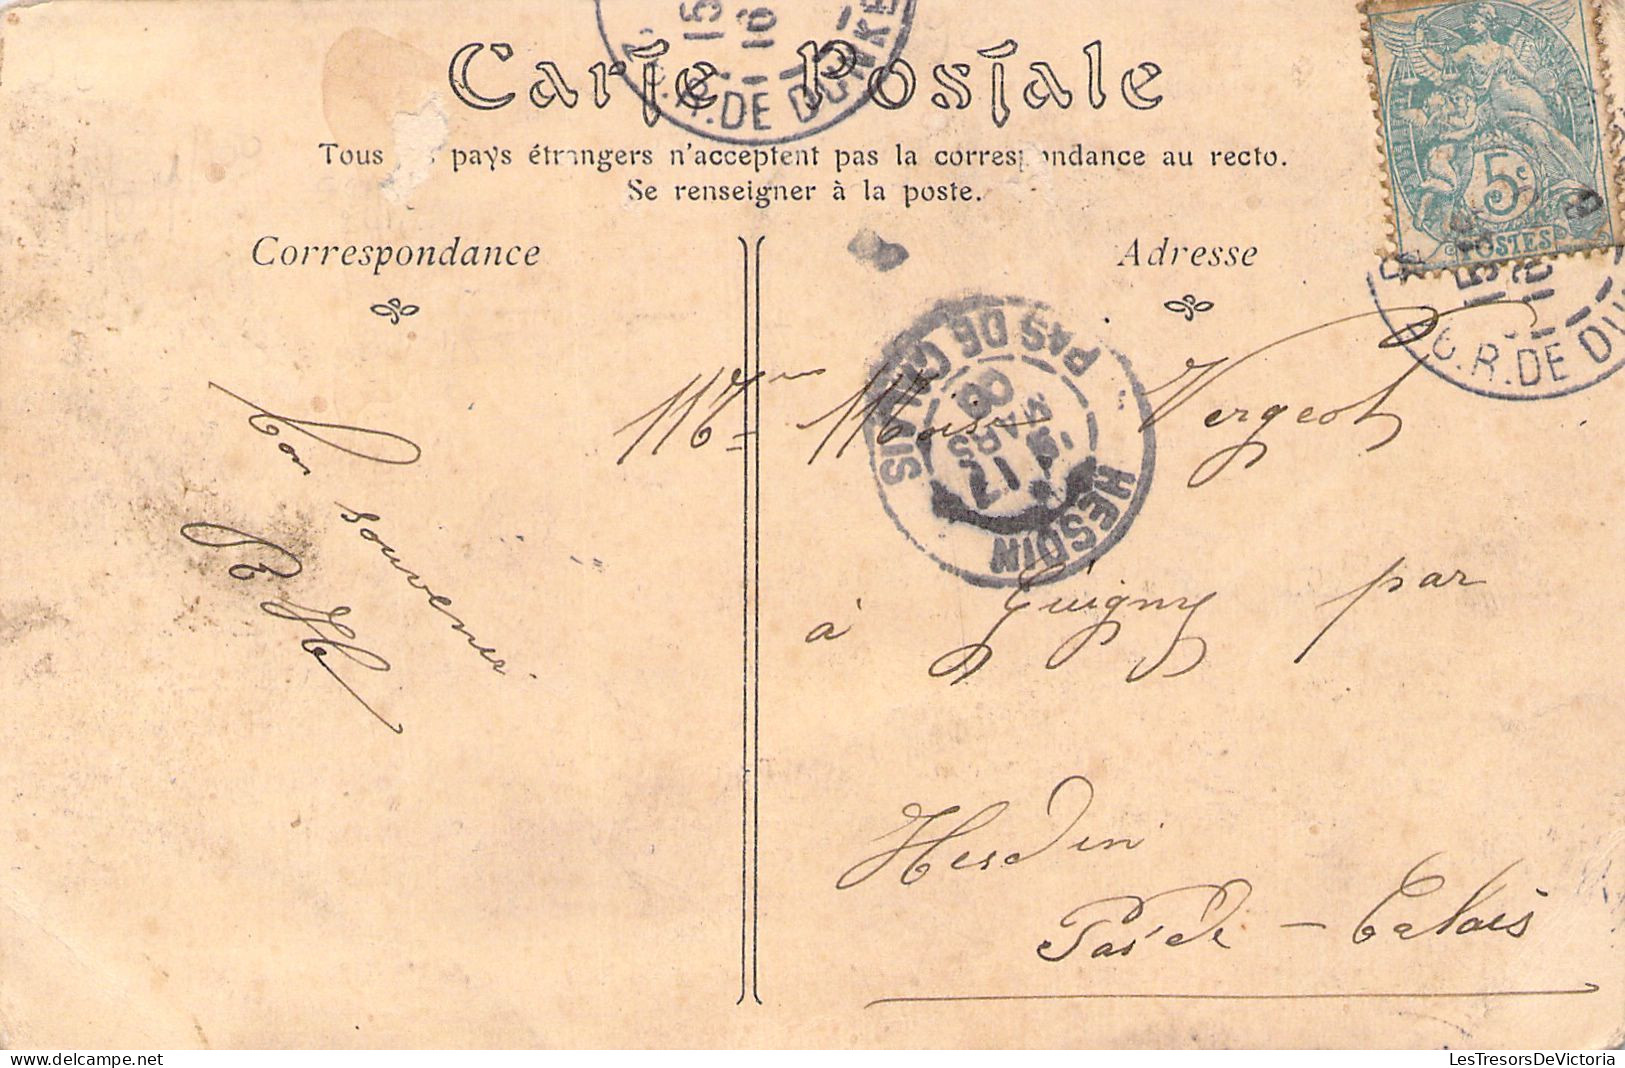 Carte Postale
Tous pays étrangers n'acceptent pas la correspondance au recto.
Se renseigner à la poste.
Correspondance
Adresse
15
16
C.R. DE DUNKE
FRANÇAISE
5c
POSTES
C.R. DE DU
HESDIN
PAS DE CALAIS
17
MARS
08
Mme Vergeot
à Guigny par
Hesdin
Pas de - Calais
Bon souvenir
B H
LesTresorsDeVictoria
delcampe.net